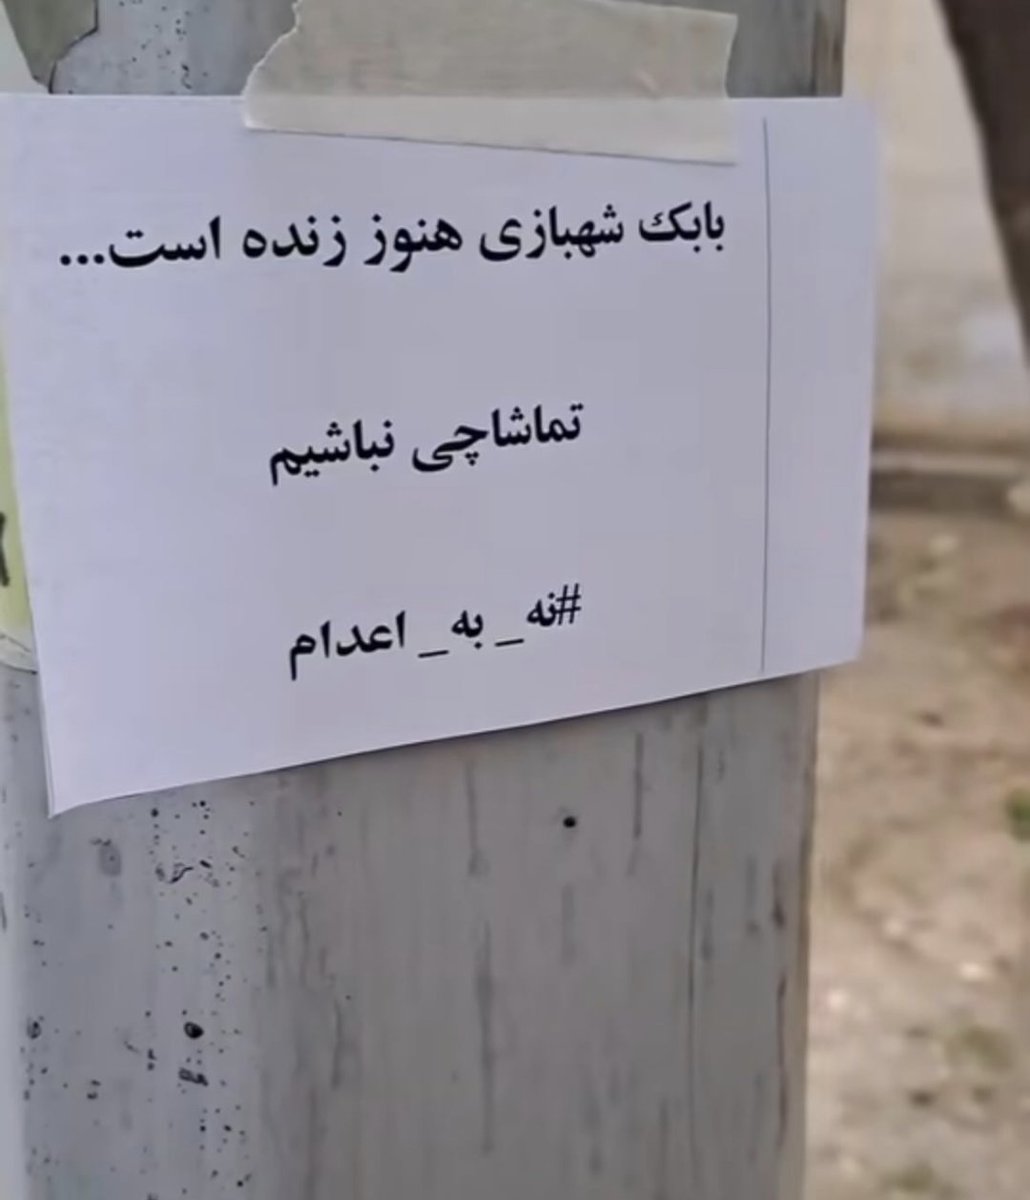 بابک شهبازی هنوز زنده است...
تماشاچی نباشیم
#نه_ به_ اعدام